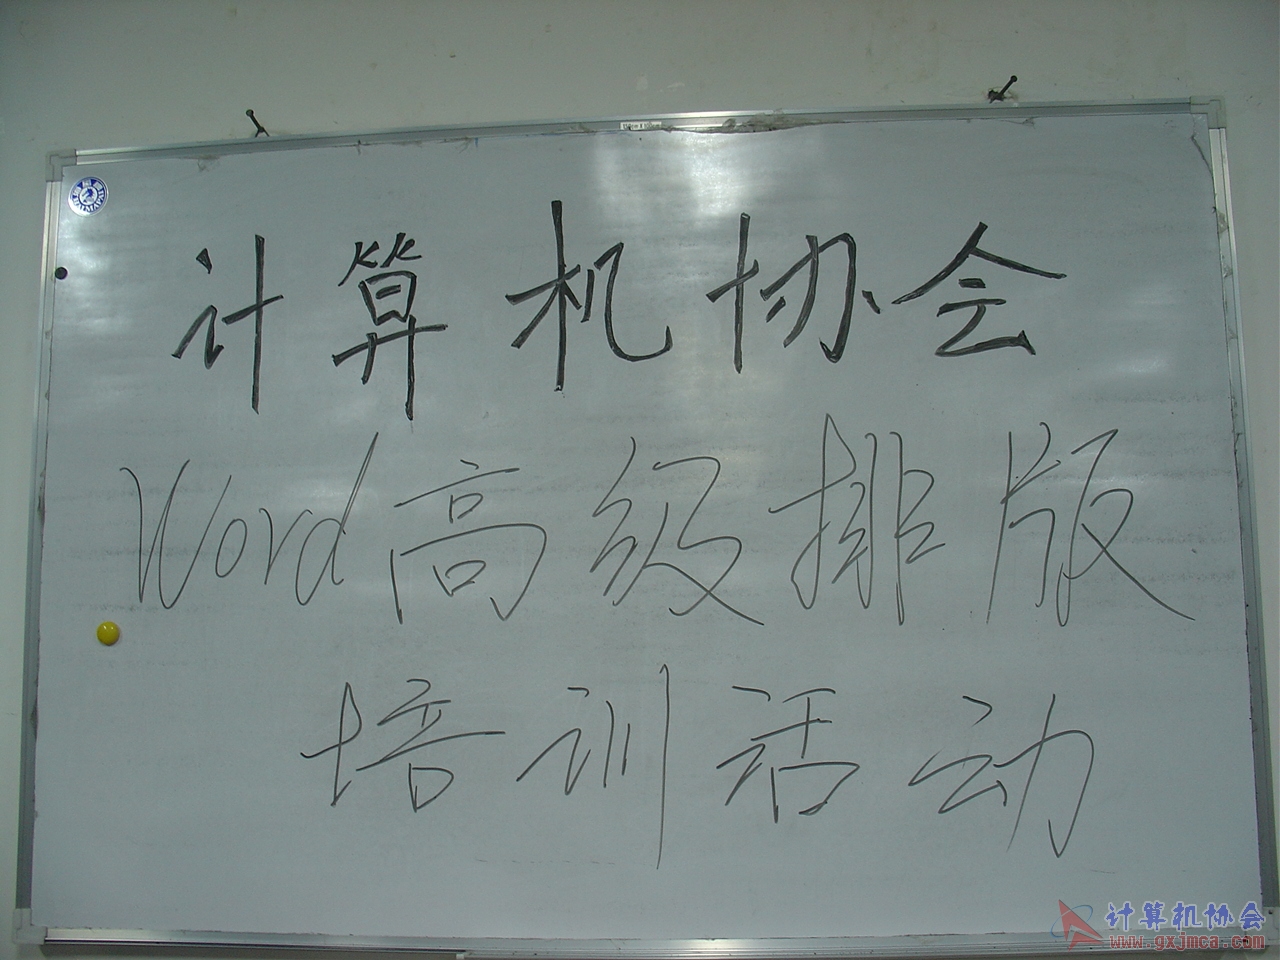 计算机协会
Word高级排版
培训活动
计算机协会
www.gxjmca.com